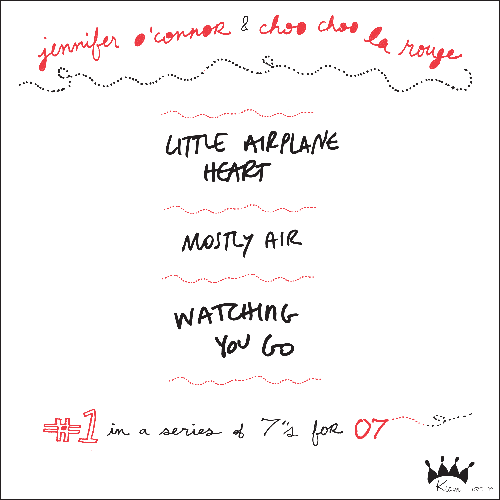 jennifer o'connor & choo choo la rouge
LITTLE AIRPLANE
HEART
MOSTLY AIR
WATCHING
YOU GO
#1 in a series of 7"s for 07
Kiam